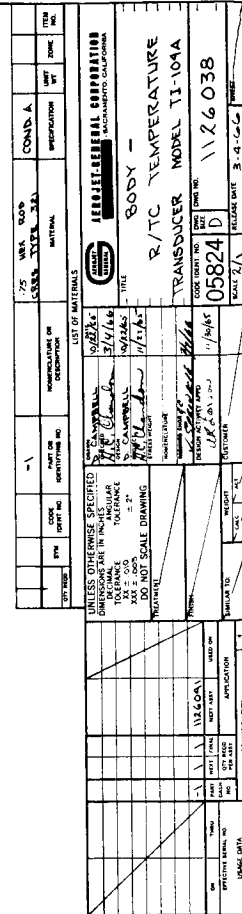 -1
.75 HEX ROD
CRES TYPE 321
COND A
QTY REQD
SYM
CODE IDENT NO.
PART OR IDENTIFYING NO.
NOMENCLATURE OR DESCRIPTION
MATERIAL
SPECIFICATION
UNIT WT
ZONE
ITEM NO.
LIST OF MATERIALS
UNLESS OTHERWISE SPECIFIED
DIMENSIONS ARE IN INCHES
DECIMAL TOLERANCE
ANGULAR TOLERANCE
.XX ± .010
± 2°
.XXX ± .005
DO NOT SCALE DRAWING
TREATMENT
FINISH
SIMILAR TO:
WEIGHT
CALC
ACT
DRAWN
D. CAMPBELL
10/22/65
3/4/66
D. CAMPBELL
10/22/65
11/23/65
STRESS WEIGHT
NOMENCLATURE
DESIGN ACTIVITY APPD
11/30/65
CUSTOMER
AEROJET-GENERAL CORPORATION
SACRAMENTO, CALIFORNIA
AEROJET
GENERAL
TITLE
BODY -
R/TC TEMPERATURE
TRANSDUCER MODEL TI-109A
CODE IDENT NO.
05824
DWG SIZE
D
DWG NO.
1126038
SCALE 2/1
RELEASE DATE 3-4-66
SHEET
-1
1
1
1126091
PART DASH NO.
NEXT
FINAL
QTY REQD PER ASSY
NEXT ASSY
USED ON
APPLICATION
ON
THRU
EFFECTIVE SERIAL NO.
USAGE DATA